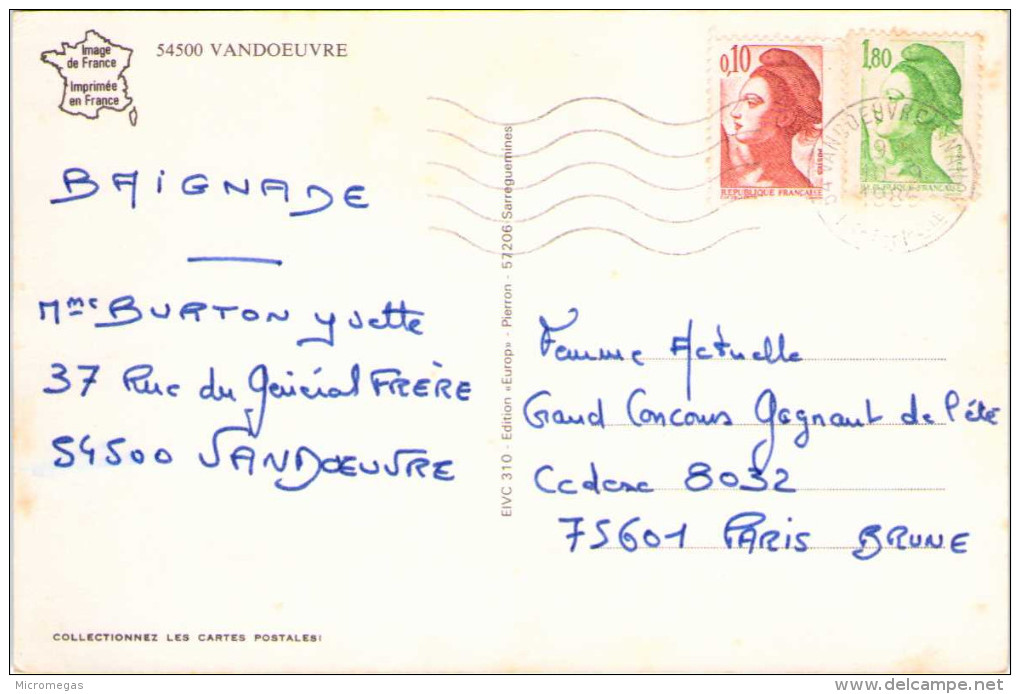 Image
de France
Imprimée
en France
54500 VANDOEUVRE
BAIGNADE
Mme BURTON Yvette
37 Rue du Général FRÈRE
54500 VANDOEUVRE
COLLECTIONNEZ LES CARTES POSTALES!
EIVC 310 - Edition «Europ» - Pierron - 57206 Sarreguemines
0,10
REPUBLIQUE FRANÇAISE
1,80
REPUBLIQUE FRANÇAISE
54 VANDOEUVRE
Femme Actuelle
Grand Concours Gagnant de l'été
Cedex 8032
75601 PARIS BRUNE
Micromegas